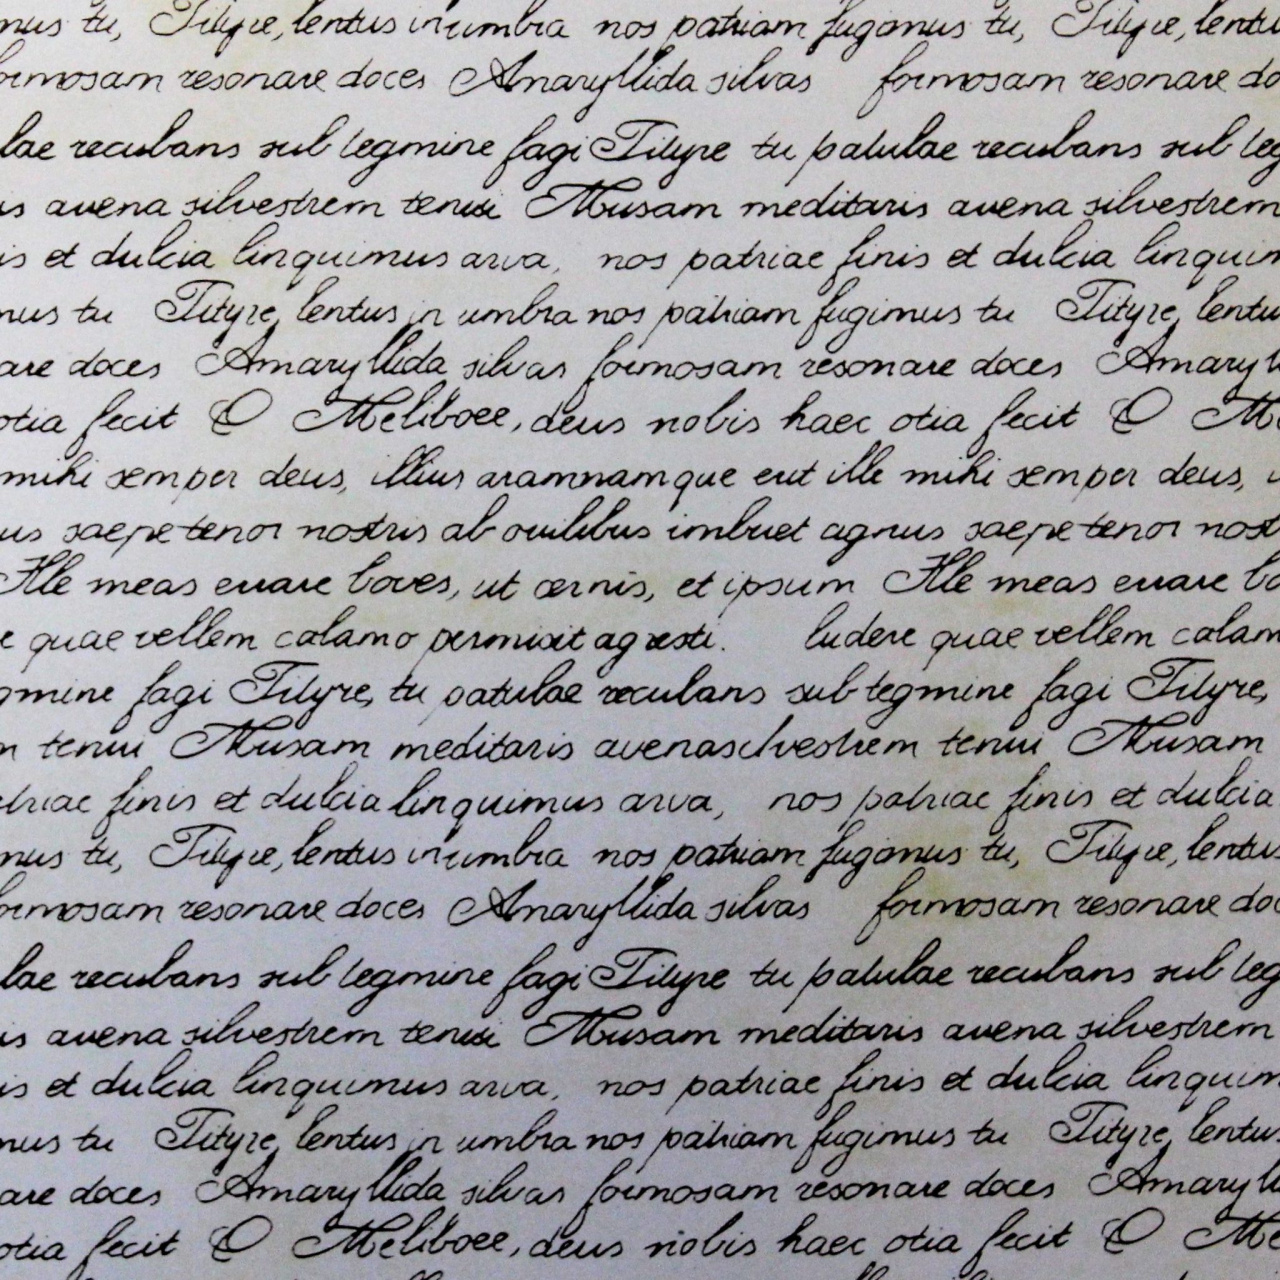 mus tu, Tityre, lentus in umbra nos patriam fugimus tu, Tityre, lentu
formosam resonare doces Amaryllida silvas formosam resonare do
lae recubans sub tegmine fagi Tityre tu patulae recubans sub teg
is avena silvestrem tenui Musam meditaris avena silvestrem
is et dulcia linquimus arva, nos patriae finis et dulcia linquim
mus tu Tityre, lentus in umbra nos patriam fugimus tu Tityre, lentu
are doces Amaryllida silvas formosam resonare doces Amaryll
otia fecit O Meliboee, deus nobis haec otia fecit O Me
mihi semper deus, illius aramnamque erit ille mihi semper deus, i
us saepe tenor nostris ab ovilibus imbuet agnus saepe tenor nost
Ille meas errare boves, ut cernis, et ipsum Ille meas errare bo
e quae vellem calamo permisit agresti. ludere quae vellem calam
gmine fagi Tityre, tu patulae recubans sub tegmine fagi Tityre,
m tenui Musam meditaris avenasilvestrem tenui Musam
atriae finis et dulcia linquimus arva, nos patriae finis et dulcia
mus tu, Tityre, lentus in umbra nos patriam fugimus tu, Tityre, lentus
formosam resonare doces Amaryllida silvas formosam resonare doc
lae recubans sub tegmine fagi Tityre tu patulae recubans sub teg
is avena silvestrem tenui Musam meditaris avena silvestrem
is et dulcia linquimus arva, nos patriae finis et dulcia linquim
mus tu Tityre, lentus in umbra nos patriam fugimus tu Tityre, lentus
are doces Amaryllida silvas formosam resonare doces Amaryll
otia fecit O Meliboee, deus nobis haec otia fecit O Me